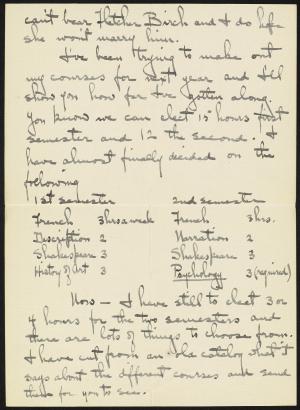 can't bear Fletcher Birch and I do hope
she won't marry him.
I've been trying to make out
my courses for next year and I'll
show you how far I've gotten along.
You know we can elect 15 hours first
semester and 12 the second. I
have almost finally decided on the
following
1st semester 2nd semester
French 3 hrs a week French 3 hrs.
Description 2 Narration 2
Shakespeare 3 Shakespeare 3
History of Art 3 Psychology 3 (required)
Now — I have still to elect 3 or
4 hours for the two semesters and
there are lots of things to choose from.
I have cut from an old catalog what it
says about the different courses and send
them for you to see.